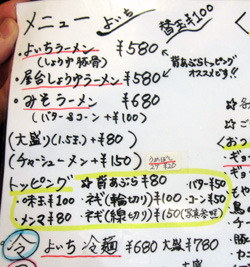 メニュー よいち 替玉¥100
・よいちラーメン ¥580
(しょうゆ豚骨)
・屋台しょうゆラーメン ¥580
☆背あぶらトッピング
オススメどす!!
・みそラーメン ¥680
(バター&コーン +¥100)
(大盛り(1.5玉) +¥80)
(チャーシューメン +¥150)
トッピング ☆背あぶら ¥80 バター¥50
・味玉¥100 ・ネギ(輪切り)¥100 ・コーン¥50
・メンマ¥80 ・ネギ(線切り)¥150
冷 よいち 冷麺 ¥680 大盛 ¥780